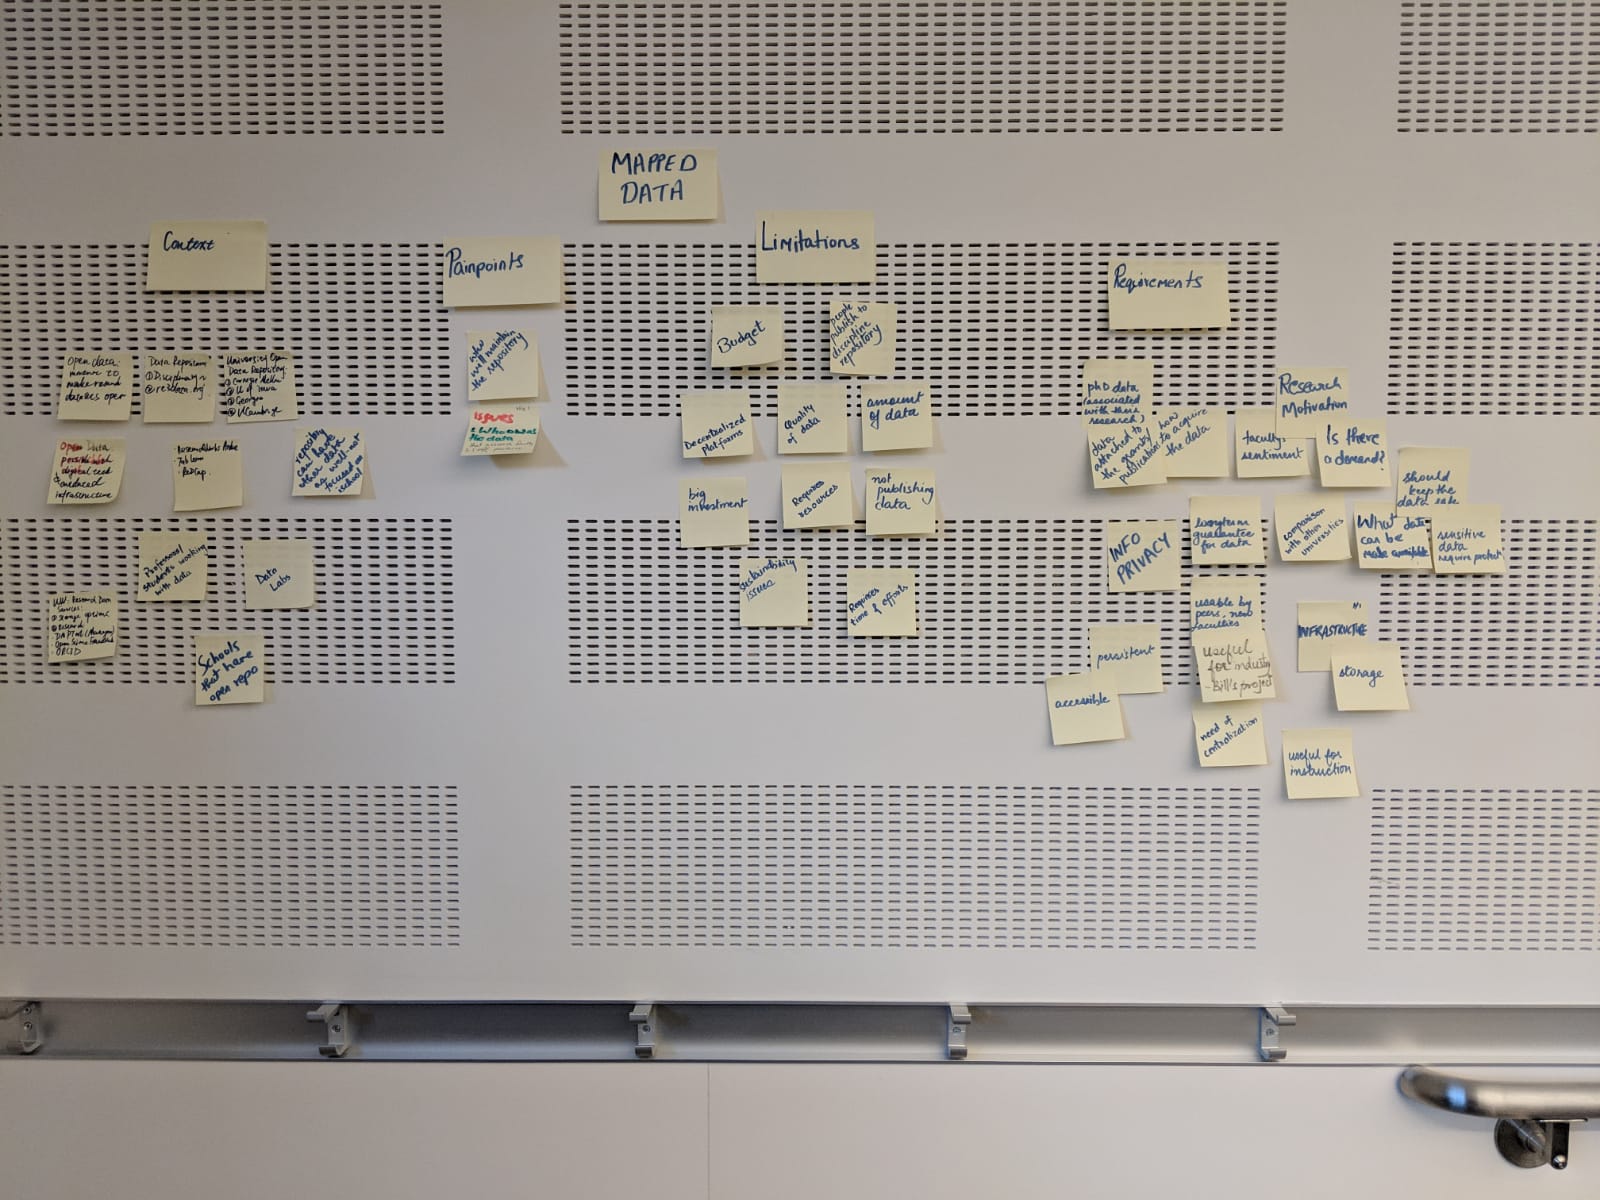 MAPPED
DATA
Context
Open data:
make
open
Data Repository
University Open
Data Repository:
Open Data:
infrastructure
repository
can have
other data
as well - not
focused on
school
Professors/
students working
with data
Data
Labs
UW: Research Data
Services:
ORCID
Schools
that have
open repo
Painpoints
who
will maintain
the repository
Issues
Who owns
the data
Limitations
Budget
people
publish to
discipline
repository
Decentralized
platforms
Quality
of data
amount
of data
big
investment
Requires
resources
not
publishing
data
Sustainability
issues
Requires
time & efforts
Requirements
phD data
(associated
with their
research)
data
attached to
the grants/
publication
how
to acquire
the data
faculty
sentiment
Research
Motivation
Is there
a demand?
should
keep the
data safe
INFO
PRIVACY
longterm
guarantee
for data
comparison
with other
universities
What data
can be
make available
sensitive
data
require protect
usable by
peers, new
faculties
persistent
accessible
useful
for industry
- Bill's project
need of
centralization
INFRASTRUCTURE
storage
useful for
instruction